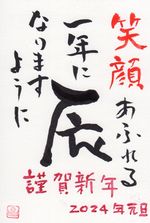 笑顔あふれる
一年に
なります
ように
辰
謹賀新年
2024年元旦